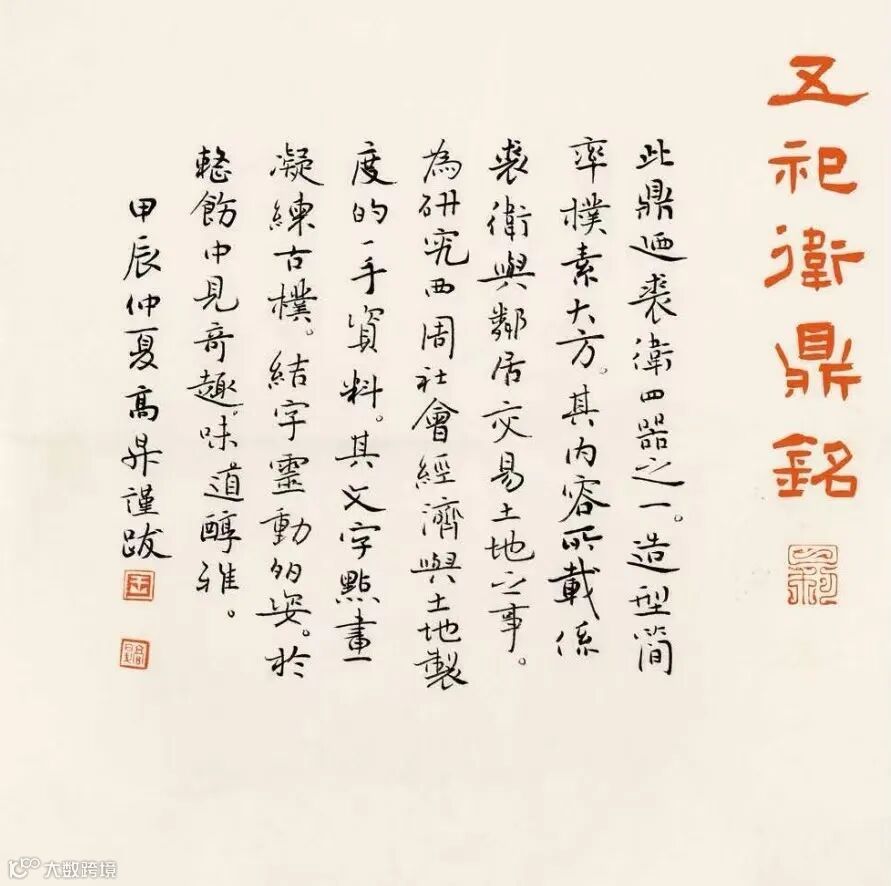 五祀衛鼎銘
此鼎迺裘衛四器之一。造型簡
率樸素大方。其内容所載係
裘衛與鄰居交易土地之事。
為研究西周社會經濟與土地製
度的一手資料。其文字點畫
凝練古樸。結字靈動多姿。於
整飭中見奇趣。味道醇雅。
甲辰仲夏高昇謹跋
大数跨境